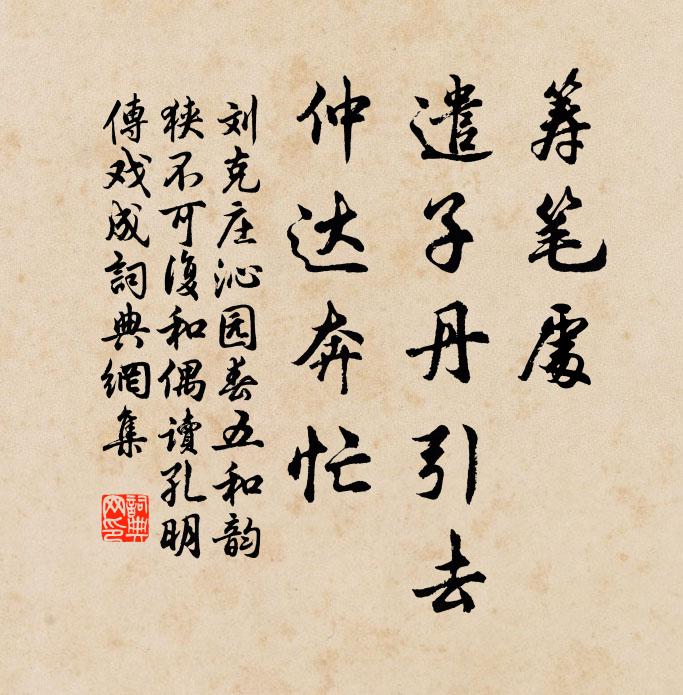 筹笔处
遣子丹引去
仲达奔忙
刘克庄沁园春五和韵
狭不可復和偶讀孔明
傳戏成詞典網集
詞典网印